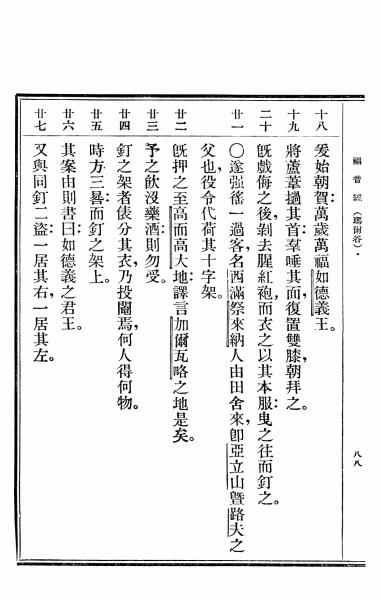 福音經（瑪爾谷）
八八
十八 爰始朝賀：萬歲萬福如德義王。
十九 將蘆葦撾其首，羣唾其面，復置雙膝朝拜之。
二十 旣戲侮之後，剝去腥紅袍，而衣之以其本服：曳之往而釘之。
廿一 〇遂强徭一過客，名西滿祭來納人由田舍來，卽亞立山曁路夫之
父也，役令代荷其十字架。
廿二 旣押之至高而高大地：譯言加爾瓦略之地是矣。
廿三 予之飮沒藥酒：則勿受。
廿四 釘之架者俵分其衣，乃投鬮焉，何人得何物。
廿五 時方三晷：而釘之架上。
廿六 其案由則書曰：如德義之君王。
廿七 又與同釘二盜：一居其右，一居其左。